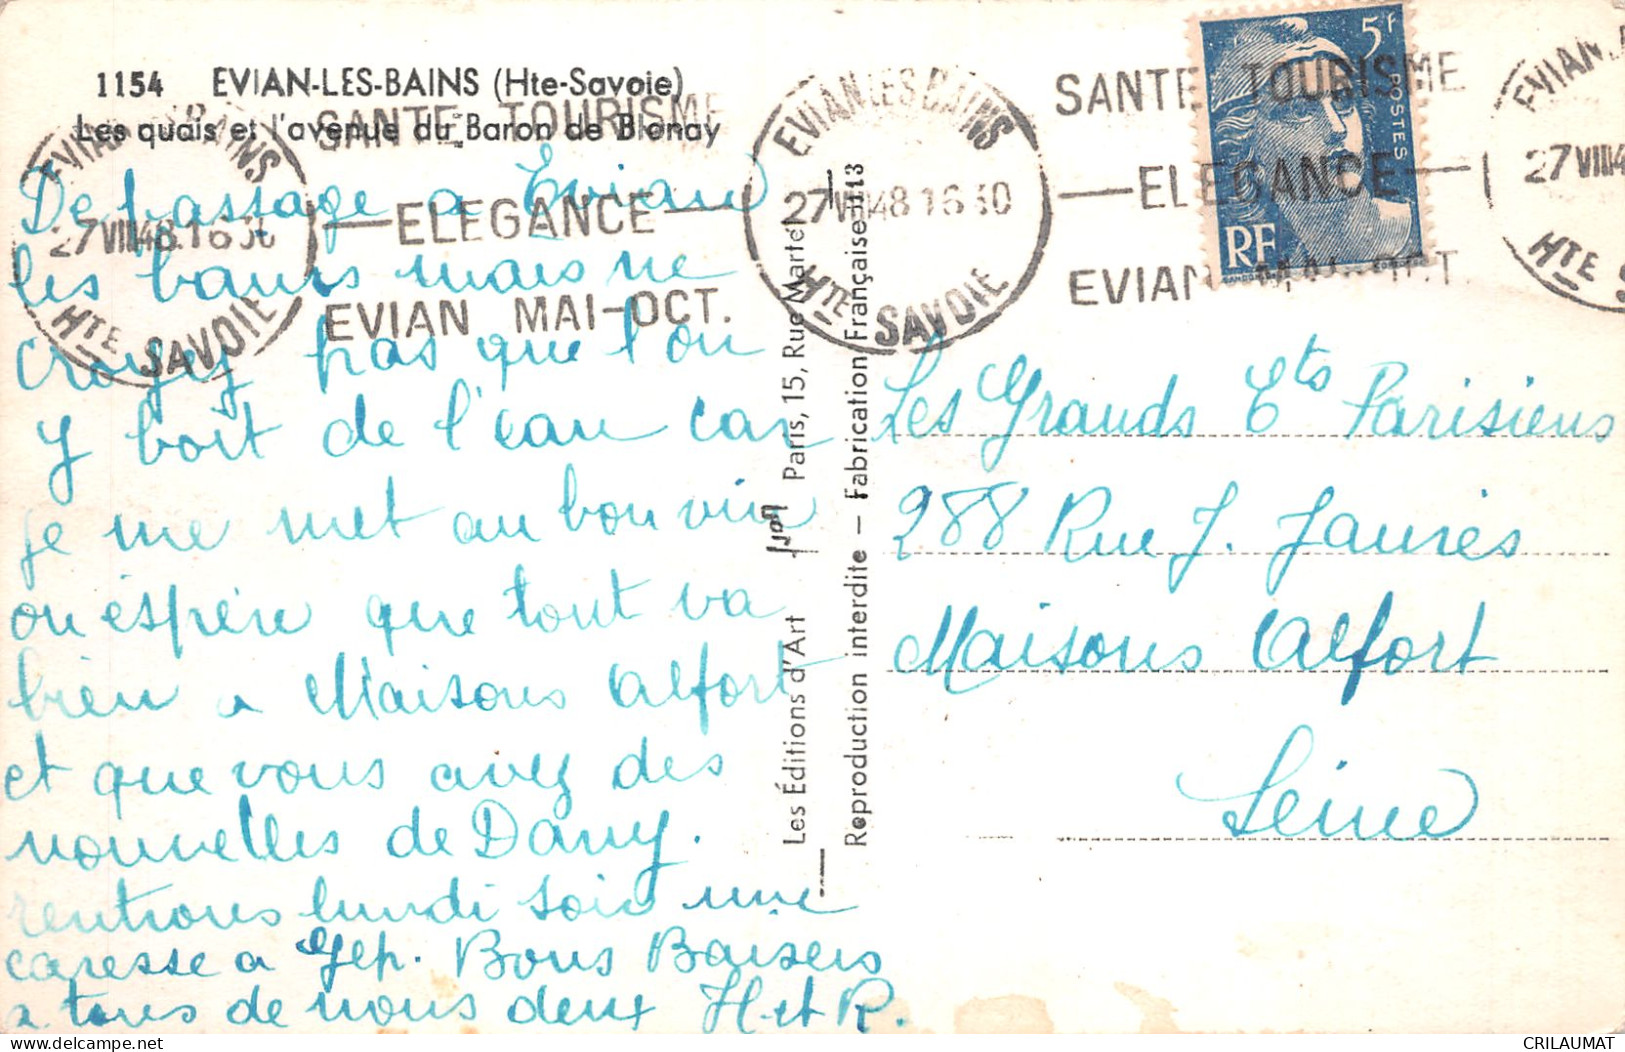 1154 EVIAN-LES-BAINS (Hte-Savoie)
Les quais et l'avenue du Baron de Blonay
EVIAN LES BAINS
27 VIII 48. 16 30
HTE SAVOIE
SANTE TOURISME
—ELEGANCE—
EVIAN MAI-OCT.
EVIAN LES BAINS
27 VIII 48. 16 30
HTE SAVOIE
SANTE TOURISME
—ELEGANCE—
EVIAN MAI-OCT.
5f
POSTES
RF
De passage a Evian
les bains mais ne
croyez pas que l'on
y boit de l'eau car
je me met au bon vin
on espère que tout va
bien a Maisons Alfort
et que vous avez des
nouvelles de Dany.
rentrons lundi soir une
caresse a Gep. Bons Baisers
a tous de nous deux H et R.
Les Éditions d'Art Yvon Paris, 15, Rue Martel
Reproduction interdite — Fabrication Française
Les Grands Ets Parisiens
288 Rue J. Jaurès
Maisons Alfort
Seine
CRILAUMAT